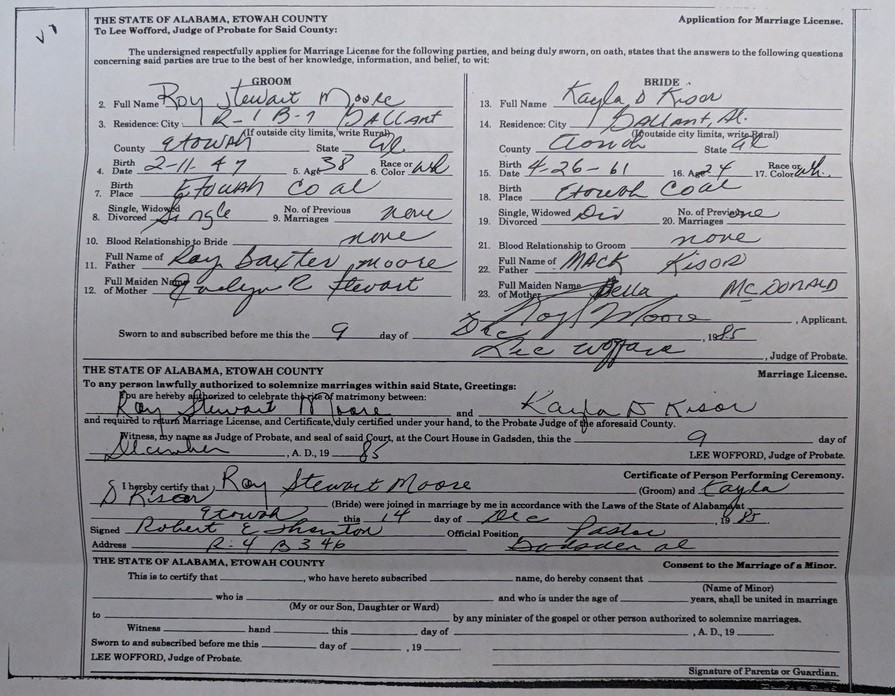 THE STATE OF ALABAMA, ETOWAH COUNTY Application for Marriage License.
To Lee Wofford, Judge of Probate for Said County:
The undersigned respectfully applies for Marriage License for the following parties, and being duly sworn, on oath, states that the answers to the following questions
concerning said parties are true to the best of her knowledge, information, and belief, to wit:
GROOM
2. Full Name Roy Stewart Moore
3. Residence: City R-1 B-7 GALLANT
(If outside city limits, write Rural)
County Etowah State Al.
4. Birth Date 2-11-47 5. Age 38 6. Race or Color wh
7. Birth Place Etowah Co al
8. Single, Widowed Divorced Single 9. No. of Previous Marriages none
10. Blood Relationship to Bride none
11. Full Name of Father Roy Baxter Moore
12. Full Maiden Name of Mother Evelyn R Stewart
BRIDE
13. Full Name Kayla D Kisor
14. Residence: City Gallant, Al.
(If outside city limits, write Rural)
County State Al
15. Birth Date 4-26-61 16. Age 24 17. Race or Color wh.
18. Birth Place Etowah Co al
19. Single, Widowed Divorced Div 20. No. of Previous Marriages one
21. Blood Relationship to Groom none
22. Full Name of Father MACK Kisor
23. Full Maiden Name of Mother Della McDONALD
Roy S Moore, Applicant.
Sworn to and subscribed before me this the 9 day of Dec, 1985
Lee Wofford, Judge of Probate.
THE STATE OF ALABAMA, ETOWAH COUNTY Marriage License.
To any person lawfully authorized to solemnize marriages within said State, Greetings:
You are hereby authorized to celebrate the rite of matrimony between:
Roy Stewart Moore and Kayla D Kisor
and required to return Marriage License, and Certificate, duly certified under your hand, to the Probate Judge of the aforesaid County.
Witness, my name as Judge of Probate, and seal of said Court, at the Court House in Gadsden, this the 9 day of
December, A. D., 19 85 LEE WOFFORD, Judge of Probate.
Certificate of Person Performing Ceremony.
I hereby certify that Roy Stewart Moore (Groom) and Kayla
D Kisor (Bride) were joined in marriage by me in accordance with the Laws of the State of Alabama, at
Etowah this 14 day of Dec, 1985.
Signed Robert E Official Position Pastor
Address R-4 B 346 Gadsden al
THE STATE OF ALABAMA, ETOWAH COUNTY Consent to the Marriage of a Minor.
This is to certify that , who have hereto subscribed name, do hereby consent that
(Name of Minor)
who is and who is under the age of years, shall be united in marriage
(My or our Son, Daughter or Ward)
to by any minister of the gospel or other person authorized to solemnize marriages.
Witness hand this day of , A. D., 19
Sworn to and subscribed before me this day of , 19
LEE WOFFORD, Judge of Probate.
Signature of Parents or Guardian.